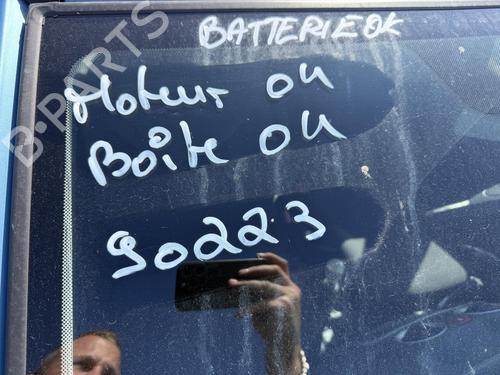 BATTERIE OK
Moteur OK
Boîte OK
90223
B-PARTS